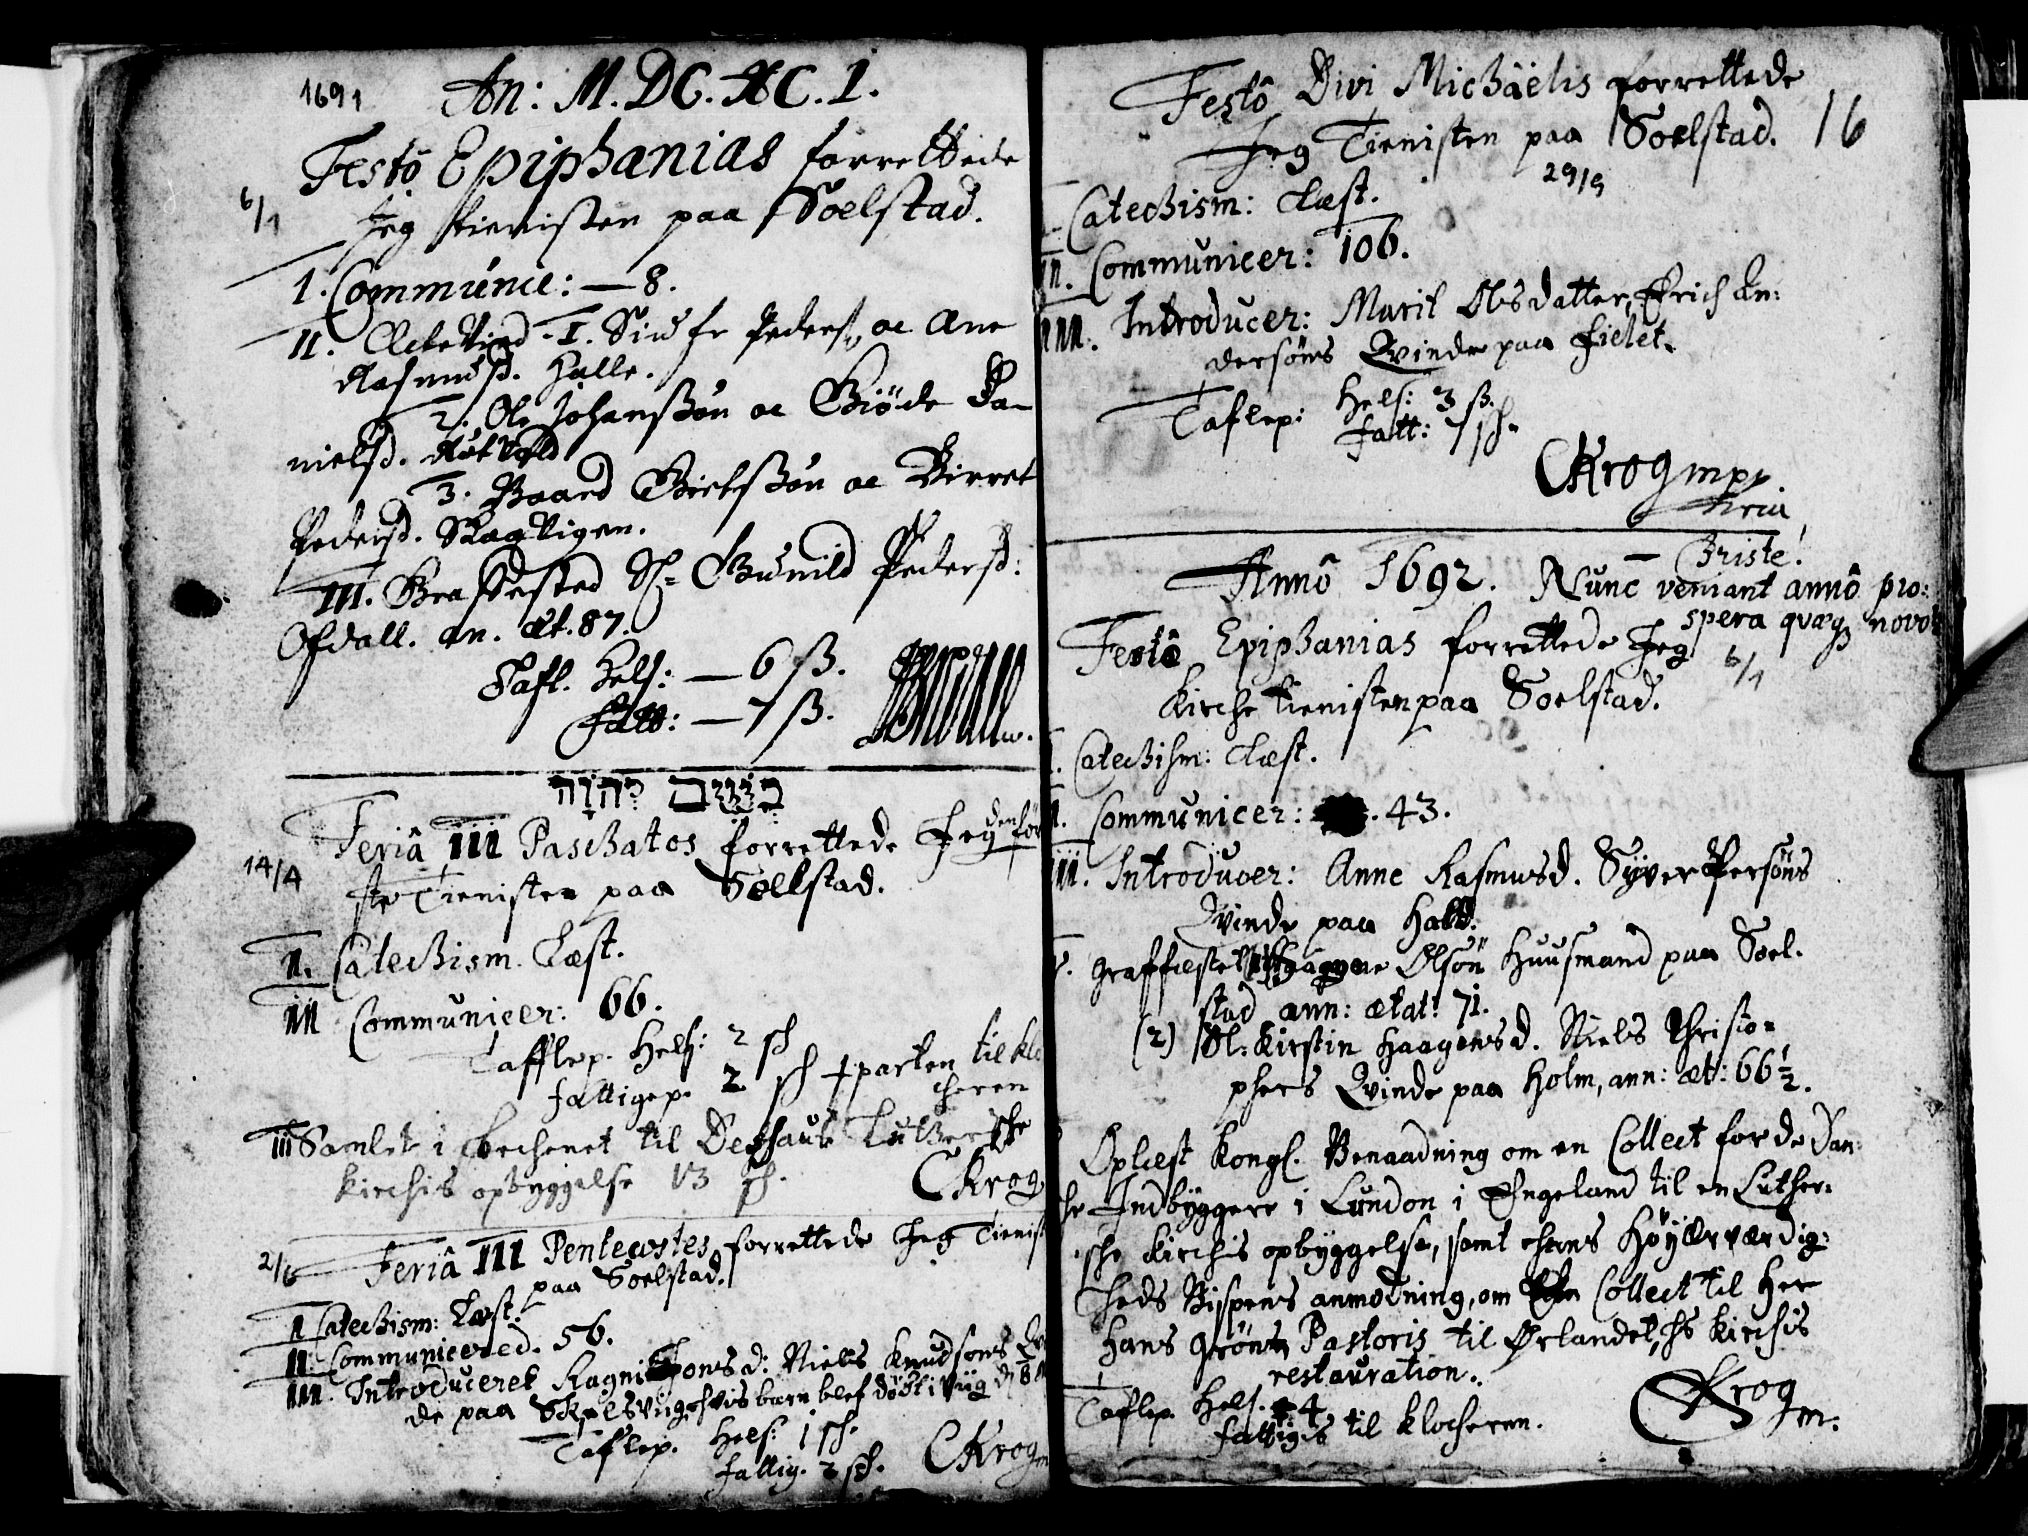 1691
An: M.DC.XC.I.
Festô Epiphanias forrettede
6/1
Jeg tienisten paa Soelstad.
I. Communic: — 8.
II. 1. Siuer Peders. oc Ane
Rasmusd. Halle.
2. Ole Johanssøn oc Giøde Da-
nielsd.
3. Baard Sön oc Birret
Pedersd. Skagvigen.
III. Sl= Gunild Pedersd:
Ofdall. an. æt. 87.
Tafl. Hels: — 6 ß.
Fatt: — 7 ß.
בשם יהוה
Feriâ III Paschatos forrettede Jeg denför
14/4
ste Tienisten paa Soelstad.
I. Catechism. Læst.
II Communicer: 66.
Tafflep. Hels: 2 sch
fattigep. 2 sch parten til klo
cheren
III Samlet i Bechenet til Lutherske
kirchis opbyggelse 13 sch.
CKrog
2/6
Feriâ III Pentecostes forrettede Jeg Tienist
paa Soelstad.
I Catechism: Læst.
II. Communicered. 56.
III. Introduceret Ragni Tonsd: Niels Knudsøns Qvi
de paa hvis barn blef død
Taflep. Hels: 1 sch.
fattig. 2 sch. CKrog
Festô Divi Michäelis forrettede
Jeg Tienisten paa Soelstad. 16
29/9
Catechism: Læst.
II. Communicer: 106.
III. Introducer: Marit Olsdatter, Erich An:
dersøns Qvinde paa Fielet.
Taflep: Hels: 3 ß.
fatt: 1 sch.
CKrog mpp.
Annô 1692. Nunc veniant annô pro:
Christe!
spera quæq3 novo
Festô Epiphanias forrettede Jeg
6/1
Kirche tienisten paa Soelstad.
I. Catechism: Læst.
II. Communicer: 43.
III. Introducer: Anne Rasmusd. Syver Persøns
Qvinde paa Hald.
graffæstet Haagene Olsøn Huusmand paa Soel.
stad ann: ætat: 71.
(2) Sl: Kirstin Haagensd. Niels Christo=
phers Qvinde paa Holm, ann: æt: 66 1/2.
Oplæst Kongl. Benaadning om en Collect for de Dan
ske Indbyggere i Lundon i Engeland til en Luther:
sche kirchis opbyggelse, samt hans Höyærværdig:
heds Bispens anmodning, om Collect til Her
Hans Grönn Pastoris til Ørlandet, hs kirchis
restauration.
Taflep. Hels. 4
fattigis til klocheren.
CKrog m.